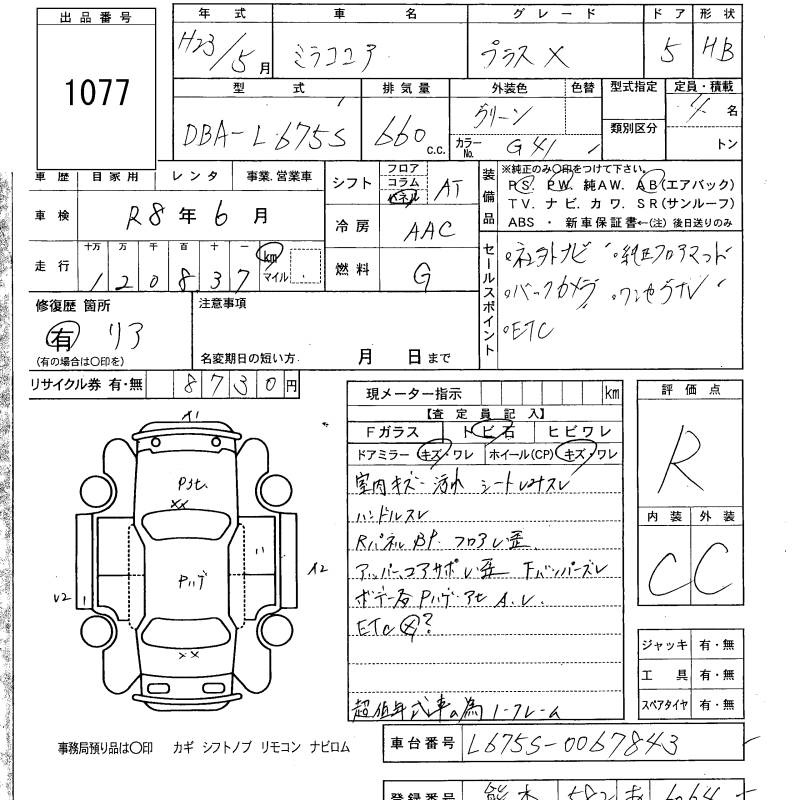 出品番号
1077
年式 車名 グレード ドア 形状
H23/5月 ミラココア プラスX 5 HB
型式 排気量 外装色 色替 型式指定 定員・積載
DBA-L675S 660 c.c. グリーン 4名
カラーNo. G41 類別区分 トン
車歴 自家用 レンタ 事業.営業車
シフト フロア コラム パネル AT
車検 R8年6月
冷房 AAC
走行 十万 万 千 百 十 一
120837 km マイル
燃料 G
装備品
※純正のみ〇印をつけて下さい。
PS. PW. 純AW. AB(エアバック)
TV. ナビ. カワ. SR(サンルーフ)
ABS ・ 新車保証書←(注) 後日送りのみ
セールスポイント
社外ナビ 純正フロアマット
バックカメラ ワンセグTV
ETC
修復歴 箇所
有 リア
(有の場合は〇印を)
注意事項
名変期日の短い方. 月 日まで
リサイクル券 有・無 8730円
現メーター指示 km
【査定員記入】
Fガラス トビ石 ヒビワレ
ドアミラー キズ・ワレ ホイール(CP) キズ・ワレ
室内キズ 汚れ シート
ハンドルスレ
Rパネル BP. フロア 歪
アッパーコアサポ 歪 Fバンパースレ
ボデー各
ETC ?
超低年式車の為 ノークレーム
評価点
R
内装 外装
C C
ジャッキ 有・無
工具 有・無
スペアタイヤ 有・無
A1
××
Pハゲ
A2
U2
××
事務局預り品は〇印 カギ シフトノブ リモコン ナビロム
車台番号 L675S-0067843
登録番号 熊本 582